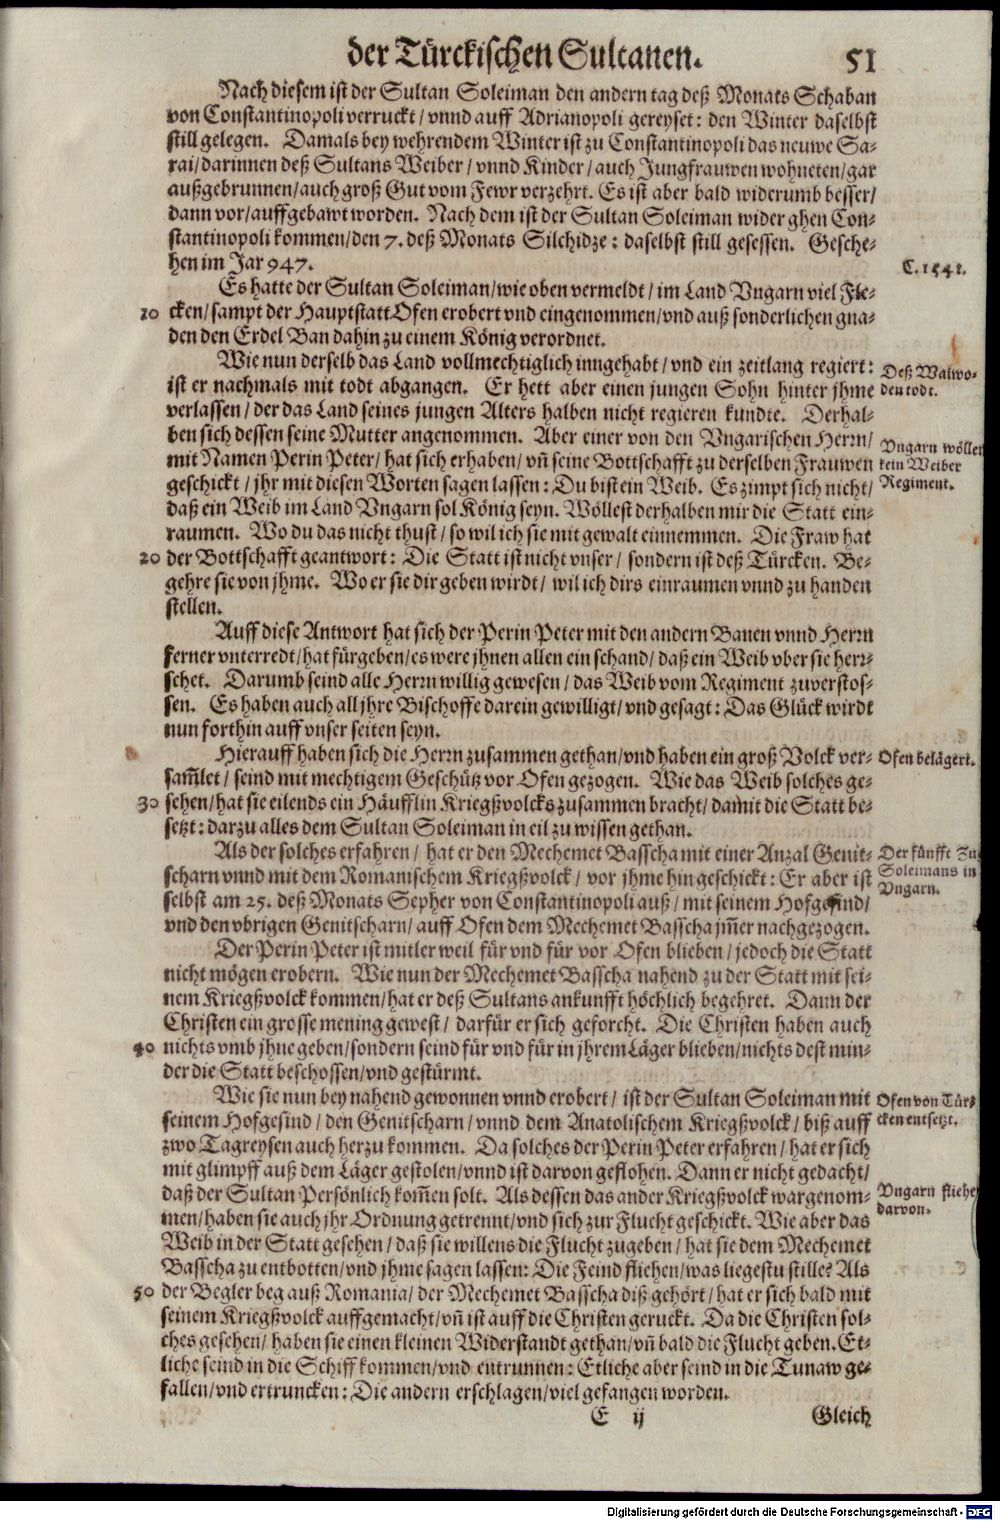 der Türckischen Sultanen. 51
Nach diesem ist der Sultan Soleiman den andern tag deß Monats Schaban
von Constantinopoli verruckt / vnnd auff Adrianopoli gereyset: den Winter daselbst
still gelegen. Damals bey wehrendem Winter ist zu Constantinopoli das neuwe Sa-
rai / darinnen deß Sultans Weiber / vnnd Kinder / auch Jungfrauwen wohneten / gar
außgebrunnen / auch groß Gut vom Fewr verzehrt. Es ist aber bald widerumb besser /
dann vor / auffgebawt worden. Nach dem ist der Sultan Soleiman wider ghen Con-
stantinopoli kommen / den 7. deß Monats Silchidze: daselbst still gesessen. Gesche-
hen im Jar 947.
C. 1541.
Es hatte der Sultan Soleiman / wie oben vermeldt / im Land Vngarn viel Fle-
10 cken / sampt der Hauptstatt Ofen erobert vnd eingenommen / vnd auß sonderlichen gna-
den den Erdel Ban dahin zu einem König verordnet.
Wie nun derselb das Land vollmechtiglich inngehabt / vnd ein zeitlang regiert:
ist er nachmals mit todt abgangen. Er hett aber einen jungen Sohn hinter jhme
Deß Waiwo-
den todt.
verlassen / der das Land seines jungen Alters halben nicht regieren kundte. Derhal-
ben sich dessen seine Mutter angenommen. Aber einer von den Vngarischen Herrn /
mit Namen Perin Peter / hat sich erhaben / vñ seine Bottschafft zu derselben Frauwen
geschickt / jhr mit diesen Worten sagen lassen: Du bist ein Weib. Es zimpt sich nicht /
Vngarn wöllen
kein Weiber
Regiment.
daß ein Weib im Land Vngarn sol König seyn. Wöllest derhalben mir die Statt ein-
raumen. Wo du das nicht thust / so wil ich sie mit gewalt einnemmen. Die Fraw hat
20 der Bottschafft geantwort: Die Statt ist nicht vnser / sondern ist deß Türcken. Be-
gehre sie von jhme. Wo er sie dir geben wirdt / wil ich dirs einraumen vnnd zu handen
stellen.
Auff diese Antwort hat sich der Perin Peter mit den andern Banen vnnd Herrn
ferner vnterredt / hat fürgeben / es were jhnen allen ein schand / daß ein Weib vber sie herr-
schet. Darumb seind alle Herrn willig gewesen / das Weib vom Regiment zuverstos-
sen. Es haben auch all jhre Bischoffe darein gewilligt / vnd gesagt: Das Glück wirdt
nun forthin auff vnser seiten seyn.
Hierauff haben sich die Herrn zusammen gethan / vnd haben ein groß Volck ver-
Ofen belägert.
sam̃let / seind mit mechtigem Geschütz vor Ofen gezogen. Wie das Weib solches ge-
30 sehen / hat sie eilends ein Häufflin Kriegßvolcks zusammen bracht / damit die Statt be-
setzt: darzu alles dem Sultan Soleiman in eil zu wissen gethan.
Als der solches erfahren / hat er den Mechemet Basscha mit einer Anzal Genit-
scharn vnnd mit dem Romanischem Kriegßvolck / vor jhme hin geschickt: Er aber ist
selbst am 25. deß Monats Sepher von Constantinopoli auß / mit seinem Hofgesind /
Der fünfft Zug
Soleimans in
Vngarn.
vnd den vbrigen Genitscharn / auff Ofen dem Mechemet Basscha jm̃er nachgezogen.
Der Perin Peter ist mitler weil für vnd für vor Ofen blieben / jedoch die Statt
nicht mögen erobern. Wie nun der Mechemet Basscha nahend zu der Statt mit sei-
nem Kriegßvolck kommen / hat er deß Sultans ankunfft höchlich begehret. Dann der
Christen ein grosse mening gewest / darfür er sich geforcht. Die Christen haben auch
40 nichts vmb jhne geben / sondern seind für vnd für in jhrem Läger blieben / nichts dest min-
der die Statt beschossen / vnd gestürmt.
Wie sie nun bey nahend gewonnen vnnd erobert / ist der Sultan Soleiman mit
seinem Hofgesind / den Genitscharn / vnnd dem Anatolischem Kriegßvolck / biß auff
Ofen von Tür-
cken entsetzt.
zwo Tagreysen auch herzu kommen. Da solches der Perin Peter erfahren / hat er sich
mit glimpff auß dem Läger gestolen / vnnd ist darvon geflohen. Dann er nicht gedacht /
daß der Sultan Persönlich kom̃en solt. Als dessen das ander Kriegßvolck wargenom-
men / haben sie auch jhr Ordnung getrennt / vnd sich zur Flucht geschickt. Wie aber das
Vngarn fliehen
darvon.
Weib in der Statt gesehen / daß sie willens die Flucht zugeben / hat sie dem Mechemet
Basscha zu entbotten / vnd jhme sagen lassen: Die Feind fliehen / was liegestu stille? Als
50 der Begler beg auß Romania / der Mechemet Basscha diß gehört / hat er sich bald mit
seinem Kriegßvolck auffgemacht / vñ ist auff die Christen geruckt. Da die Christen sol-
ches gesehen / haben sie einen kleinen Widerstandt gethan / vñ bald die Flucht geben. Et-
liche seind in die Schiff kommen / vnd entrunnen: Etliche aber seind in die Tunaw ge-
fallen / vnd ertruncken: Die andern erschlagen / viel gefangen worden.
E ij Gleich
Digitalisierung gefördert durch die Deutsche Forschungsgemeinschaft - DFG